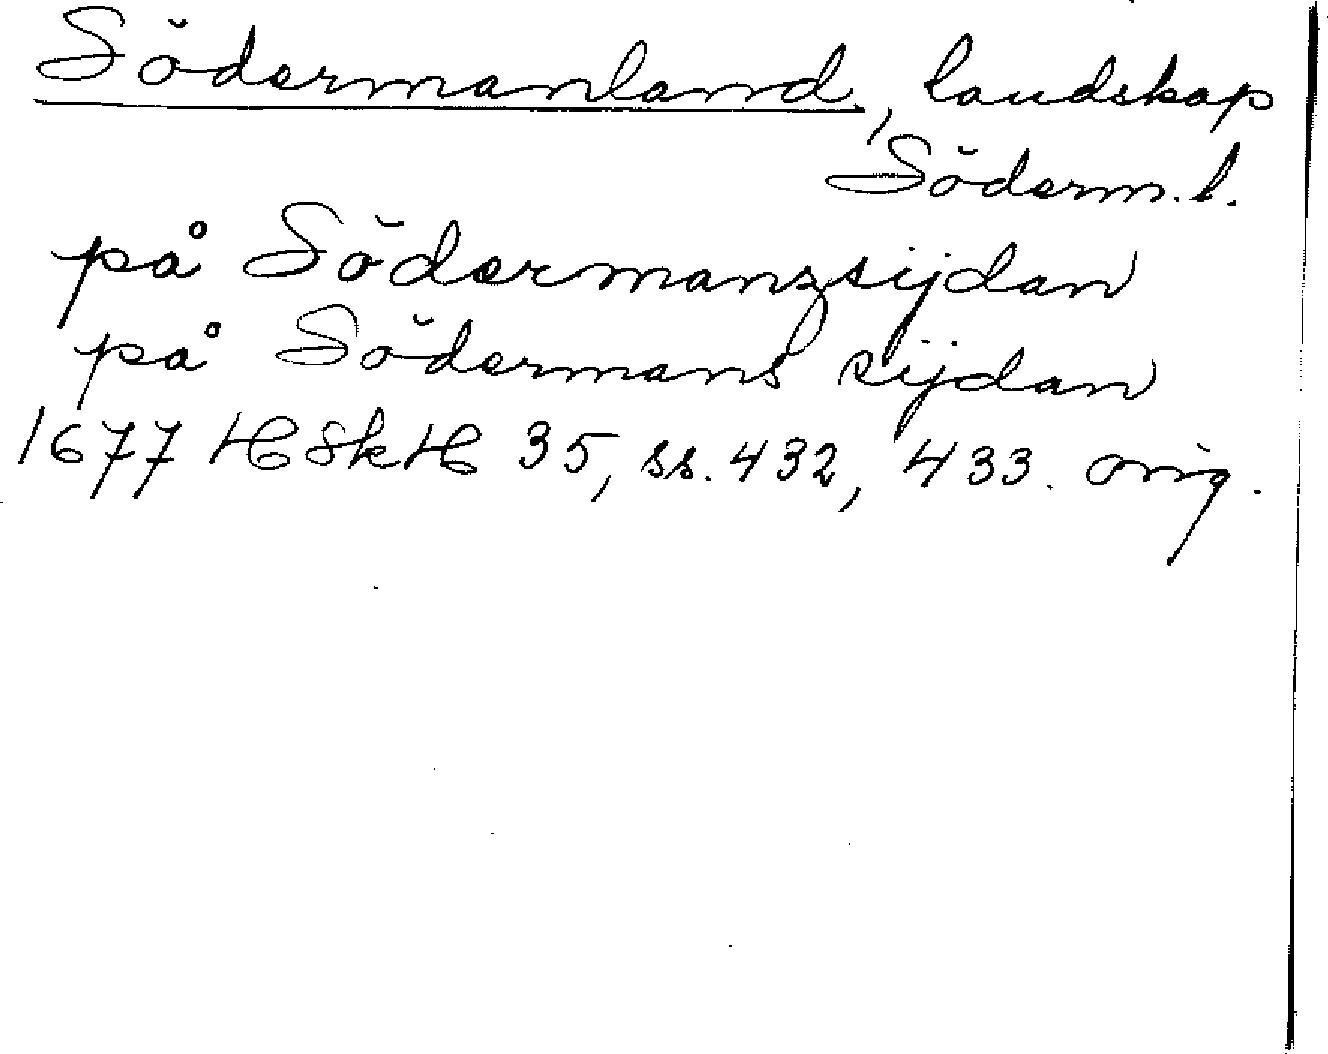 Södermanland, landskap
Söderm. l.
på Södermanssijdan
på Södermans sijdan
1677 HSkH 35, ss. 432, 433. orig.